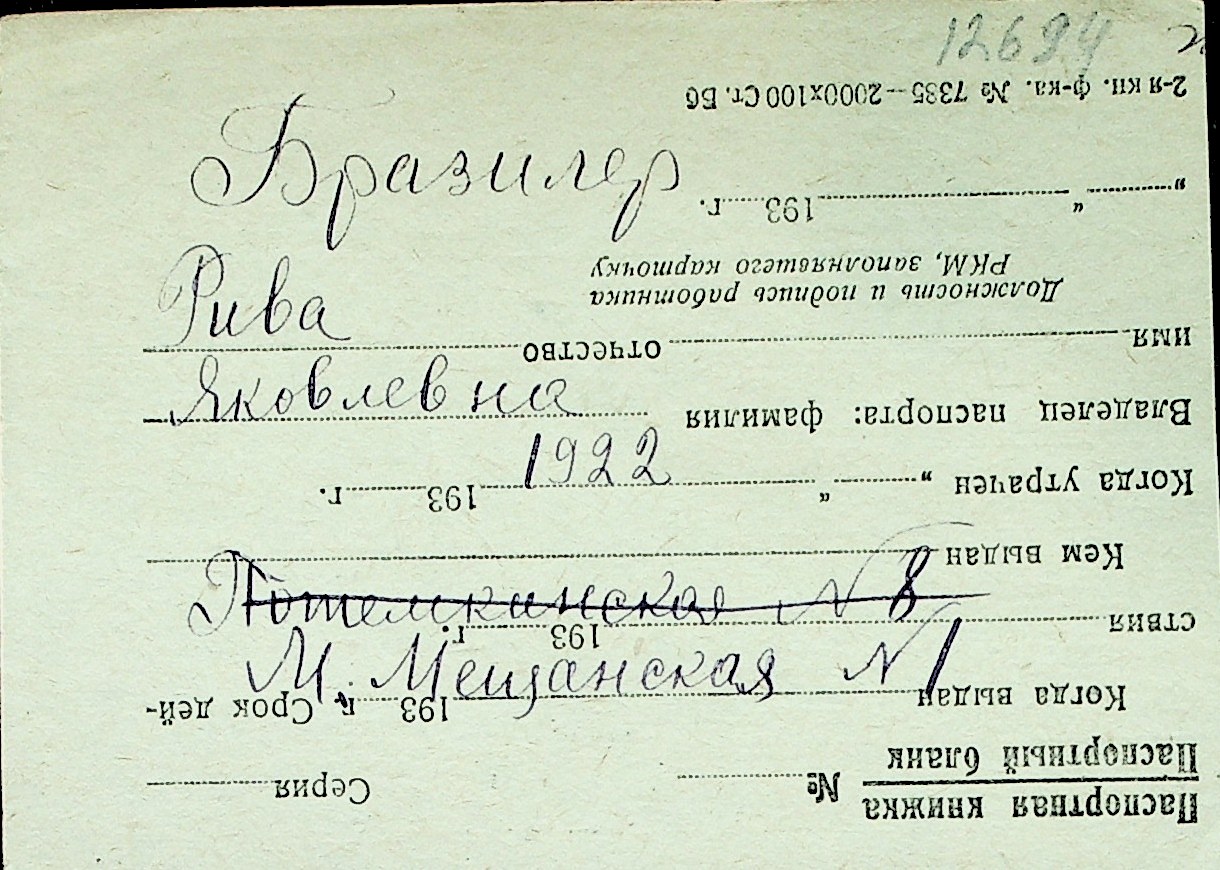 12694
Бразилер
Рива
Яковлевна
1922
Потемкинская N 8
М. Мещанская N 1
Паспортная книжка
Паспортный бланк
№ Серия
Когда выдан 193 г. Срок дей-
ствия 193 г.
Кем выдан
Когда утрачен „ “ 193 г.
Владелец паспорта: фамилия
имя отчество
Должность и подпись работника
РКМ, заполнявшего карточку
„ “ 193 г.
2-я кн. ф-ка. № 7385—2000х100 Ст. Вб